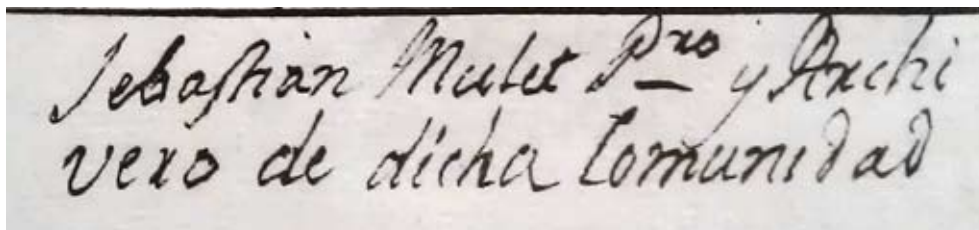 Sebastian Mulet Pro y Archi
vero de dicha Comunidad